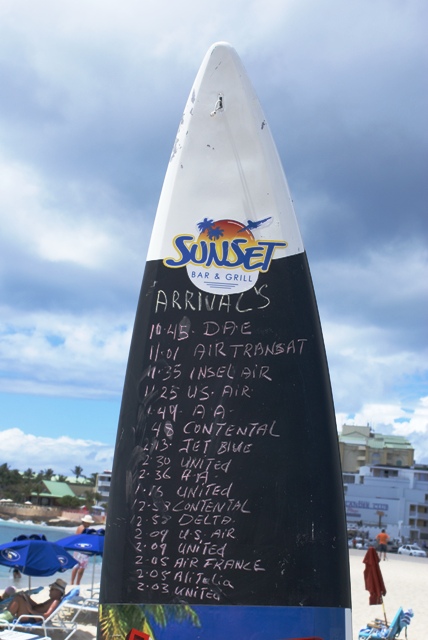 SUNSET
BAR & GRILL
ARRIVAL'S
10.45. DAE
11.01 AIR TRANSAT
11.35 INSEL AIR
11.25 U.S. AIR
1.49. A.A.
1.48 CONTENTAL
2.13. JET BLUE
2.30 UNITED
2.36 A.A.
1.15 UNITED
2.53 CONTENTAL
2.52 DELTA.
2.09 U.S. AIR
2.09 UNITED
2.05 AIR FRANCE
2.05 Alitalia
2.03 UNITED